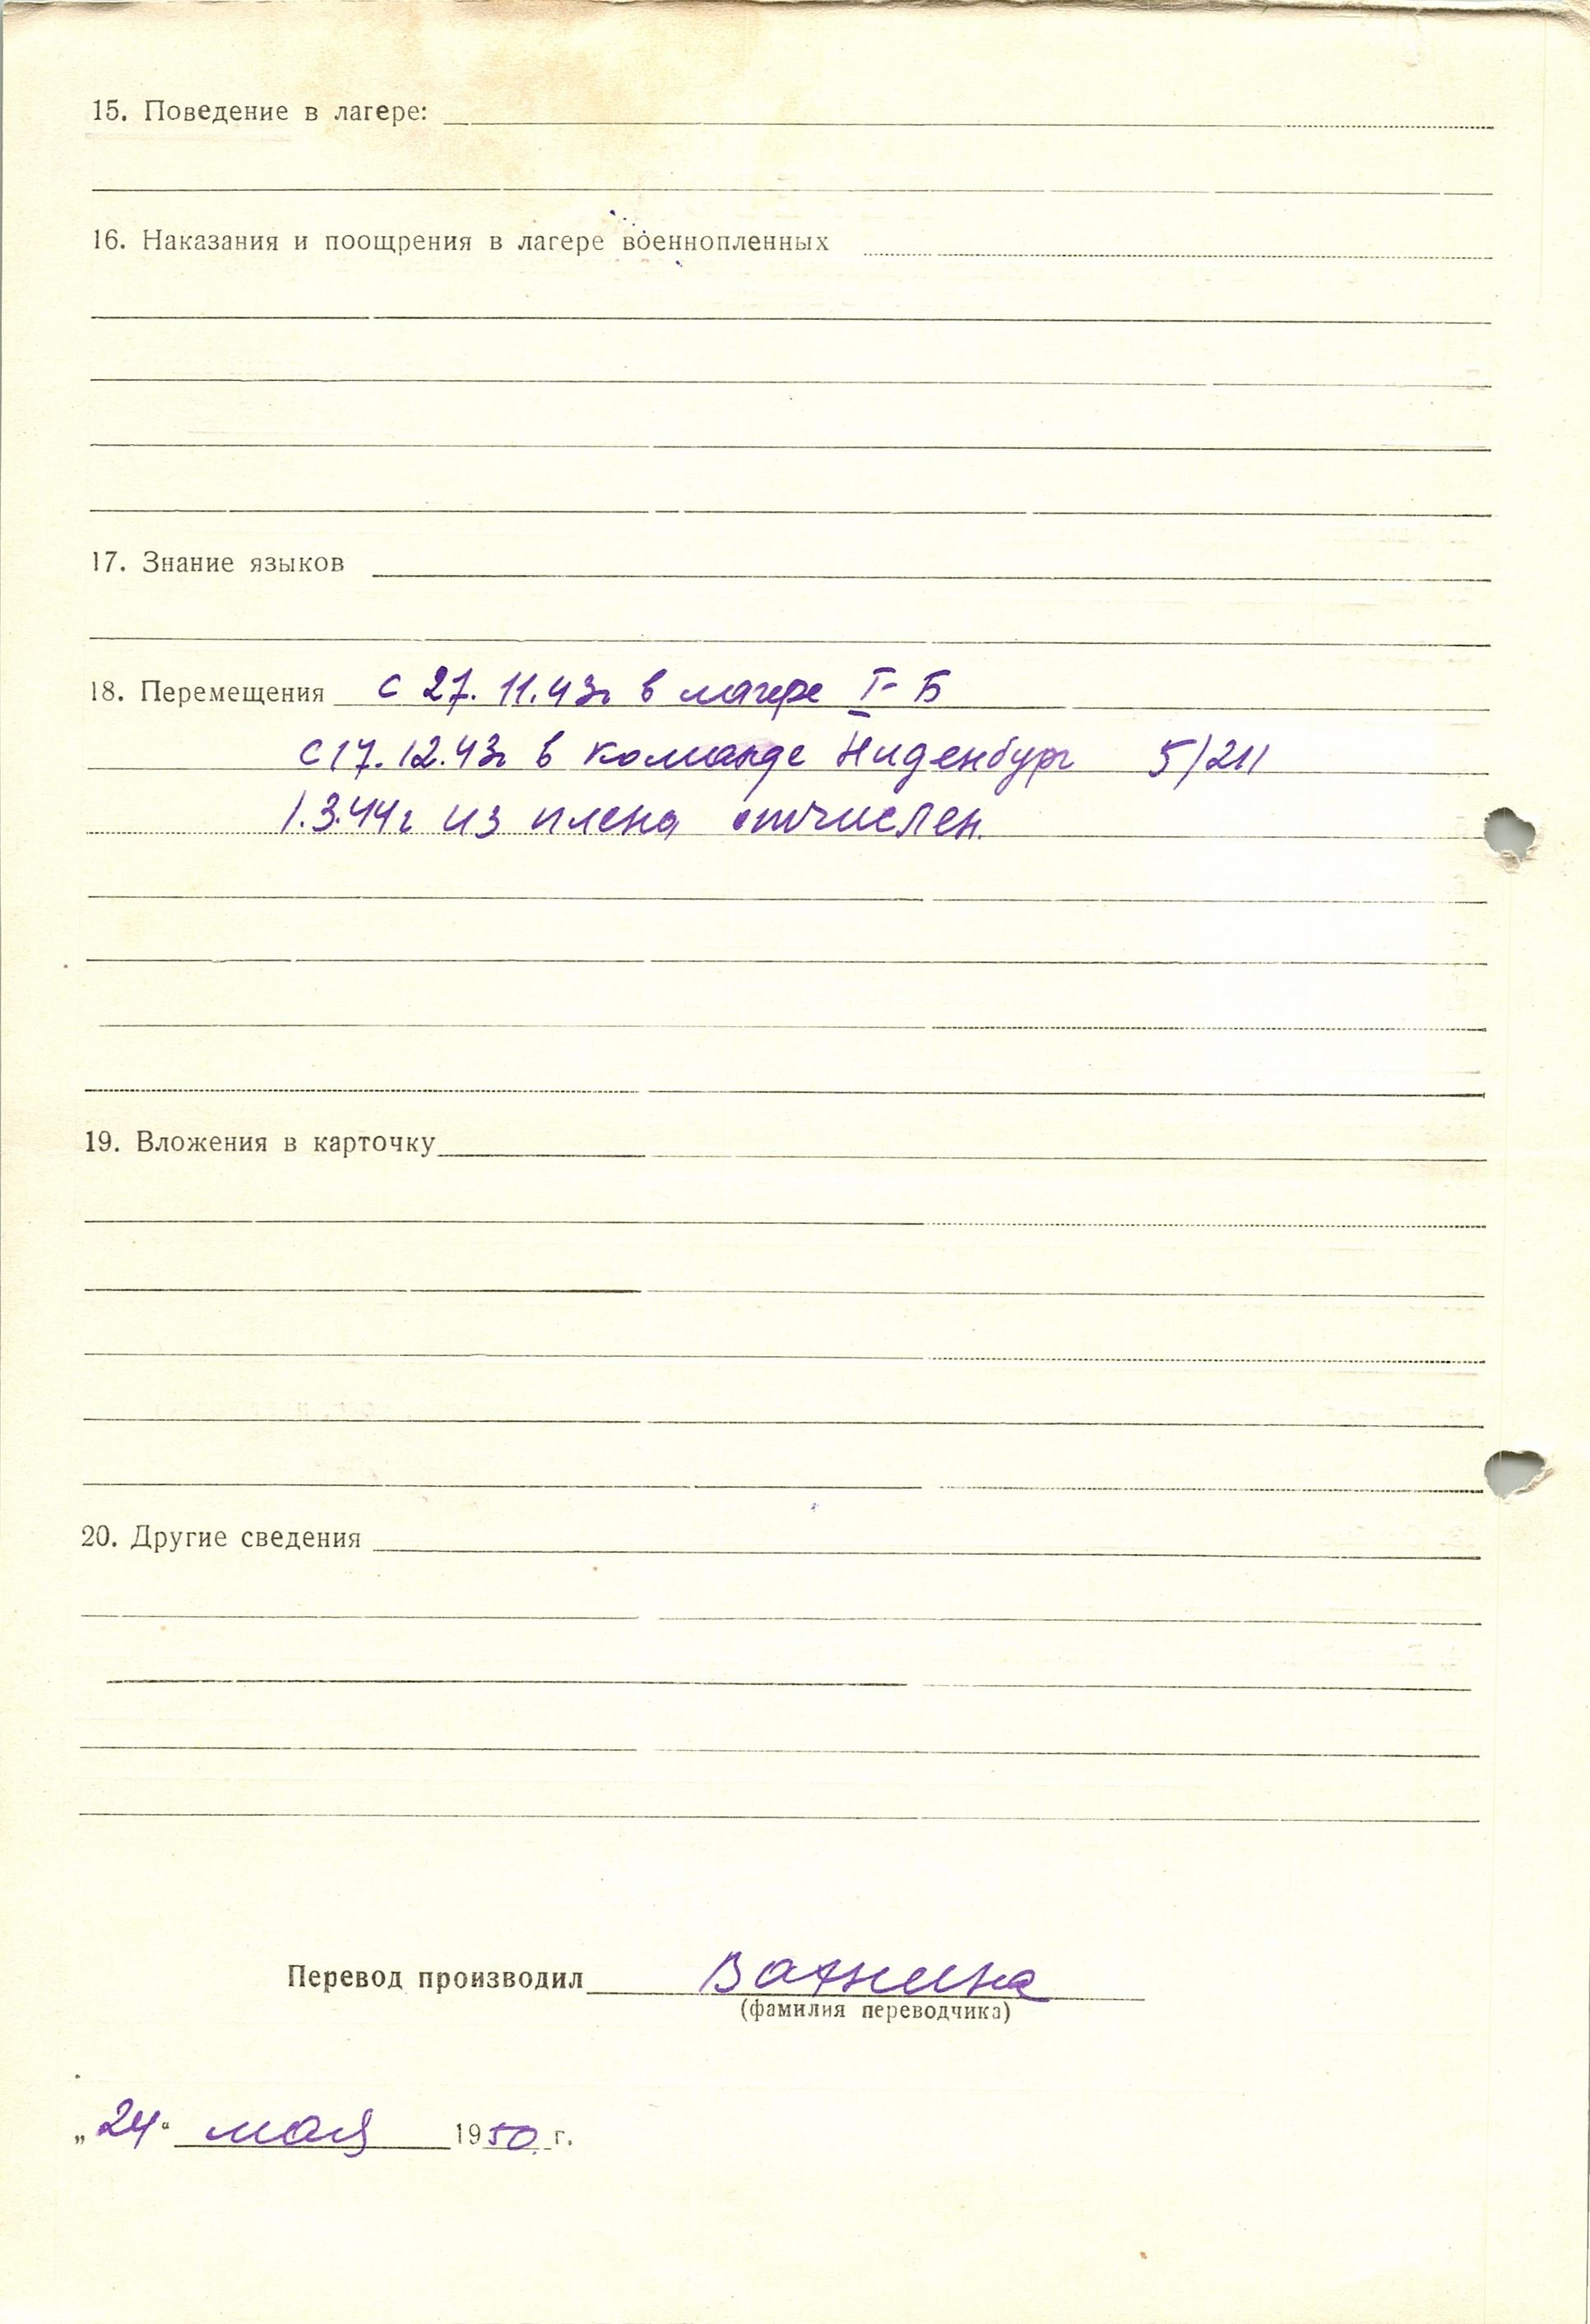 15. Поведение в лагере:
16. Наказания и поощрения в лагере военнопленных
17. Знание языков
18. Перемещения с 27.11.43г в лагере I-Б
с 17.12.43г в команде Ниденбург 5/211
1.3.44г из плена отчислен.
19. Вложения в карточку
20. Другие сведения
Перевод производил
(фамилия переводчика)
„24“ мая 1950 г.